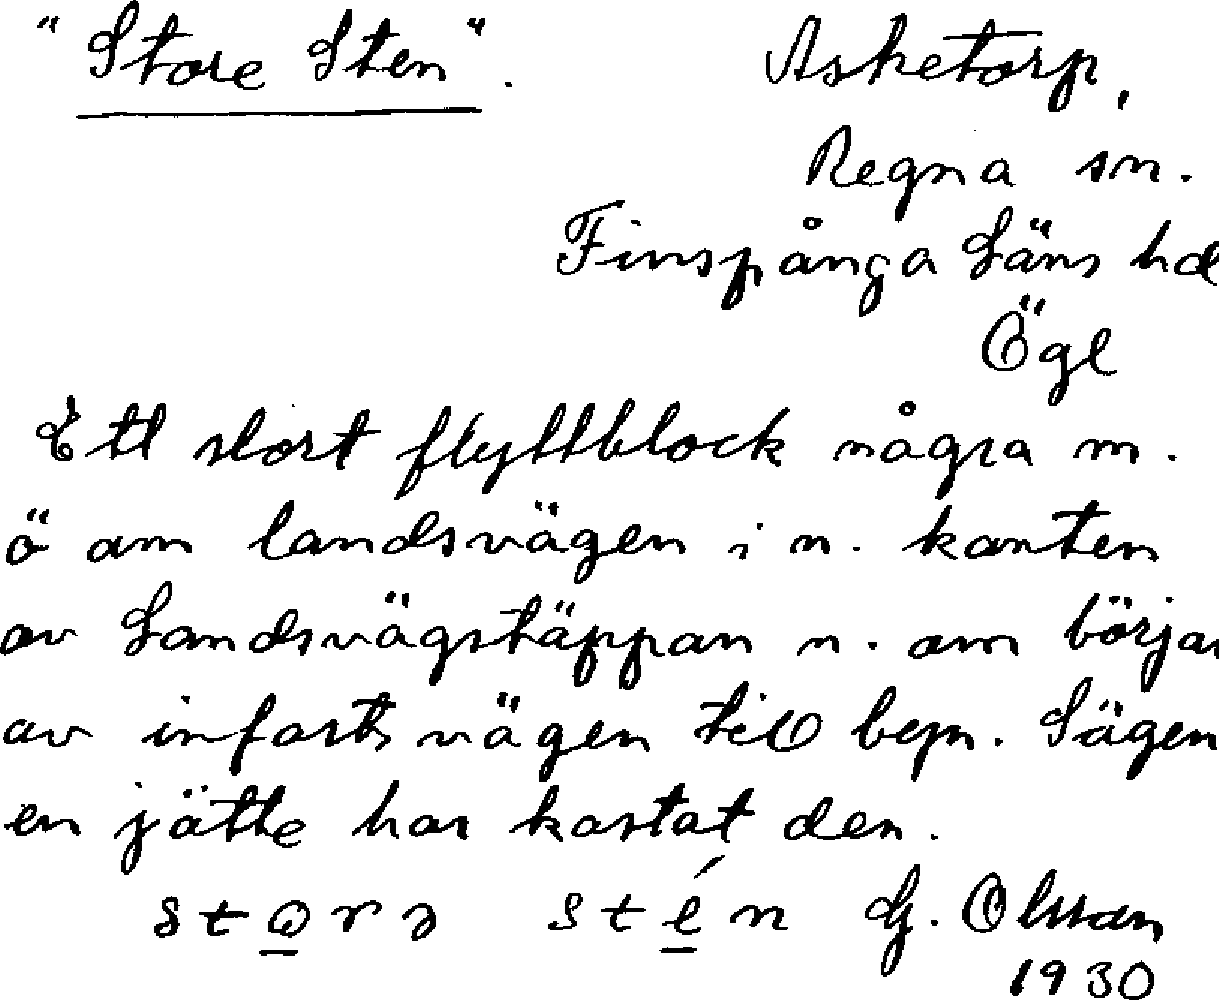 "Store Sten". Asketorp,
Regna sn.
Finspånga Läns hd
Ögl
Ett stort flyttblock några m.
ö om landsvägen i n. kanten
av Landsvägstäppan n. om början
av infartsvägen till bepn. Sägen
en jätte har kastat den.
sto̲rə sté̲n G. Olsson
1930